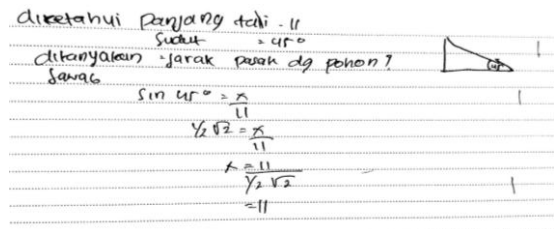 diketahui panjang tali = 11
sudut = 45°
ditanyakan = jarak pasak dg pohon?
Jawab
sin 45° = x/11
1/2 √2 = x/11
x = 11 / 1/2 √2
= 11
45°
1
1
1